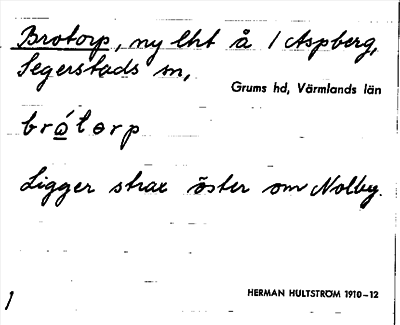 Brotorp, ny lht å 1 Aspberg,
Segerstads sn,
Grums hd, Värmlands län
brώ̲torp
Ligger strax öster om Nolby.
HERMAN HULTSTRÖM 1910–12
1